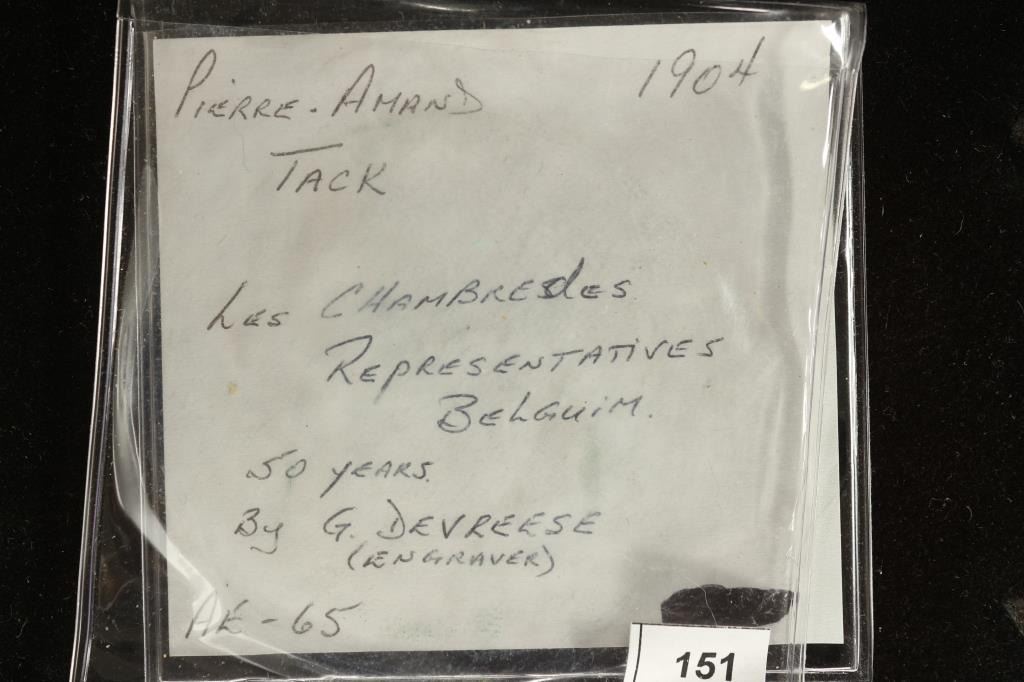 PIERRE-AMAND 1904
TACK
LES CHAMBRES des
REPRESENTATIVES
BELGUIM.
50 YEARS.
By G. DEVREESE
(ENGRAVER)
AE-65
151